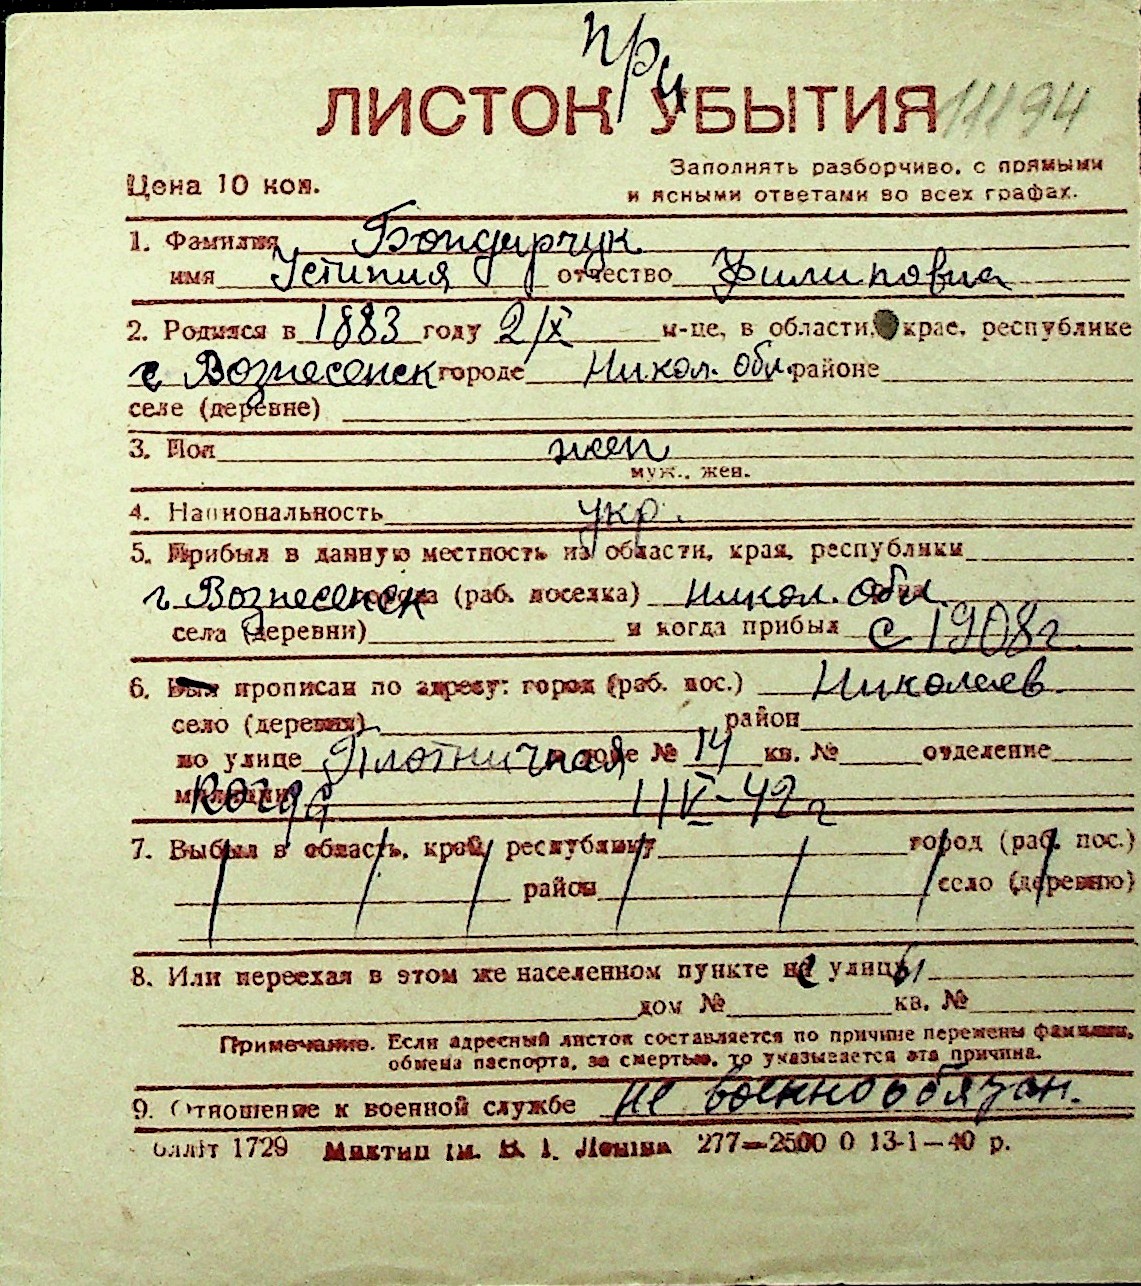 при
ЛИСТОК УБЫТИЯ 11194
Цена 10 коп.
Заполнять разборчиво, с прямыми
и ясными ответами во всех графах.
1. Фамилия Бондарчук
имя Устиния отчество Филиповна
2. Родился в 1883 году 2/X м-це, в области, крае, республике
г Вознесенск городе Никол. обл. районе
селе (деревне)
3. Пол жен
муж., жен.
4. Национальность укр.
5. Прибыл в данную местность из области, края, республики
г Вознесенск города (раб. поселка) Никол. обл
села (деревни) и когда прибыл с 1908 г.
6. Был прописан по адресу: город (раб. пос.) Николаев
село (деревня) район
по улице Плотничная в доме № 14 кв. № отделение
милиции когда 1/IV-42 г
7. Выбыл в область, край, республику город (раб. пос.)
район село (деревню)
8. Или переехал в этом же населенном пункте не улицы
дом № кв. №
Примечание. Если адресный листок составляется по причине перемены фамилии,
обмена паспорта, за смертью, то указывается эта причина.
9. Отношение к военной службе не военнообязан.
блліт 1729 Миктип ім. В. І. Леніна 277—2500 0 13-1—40 р.